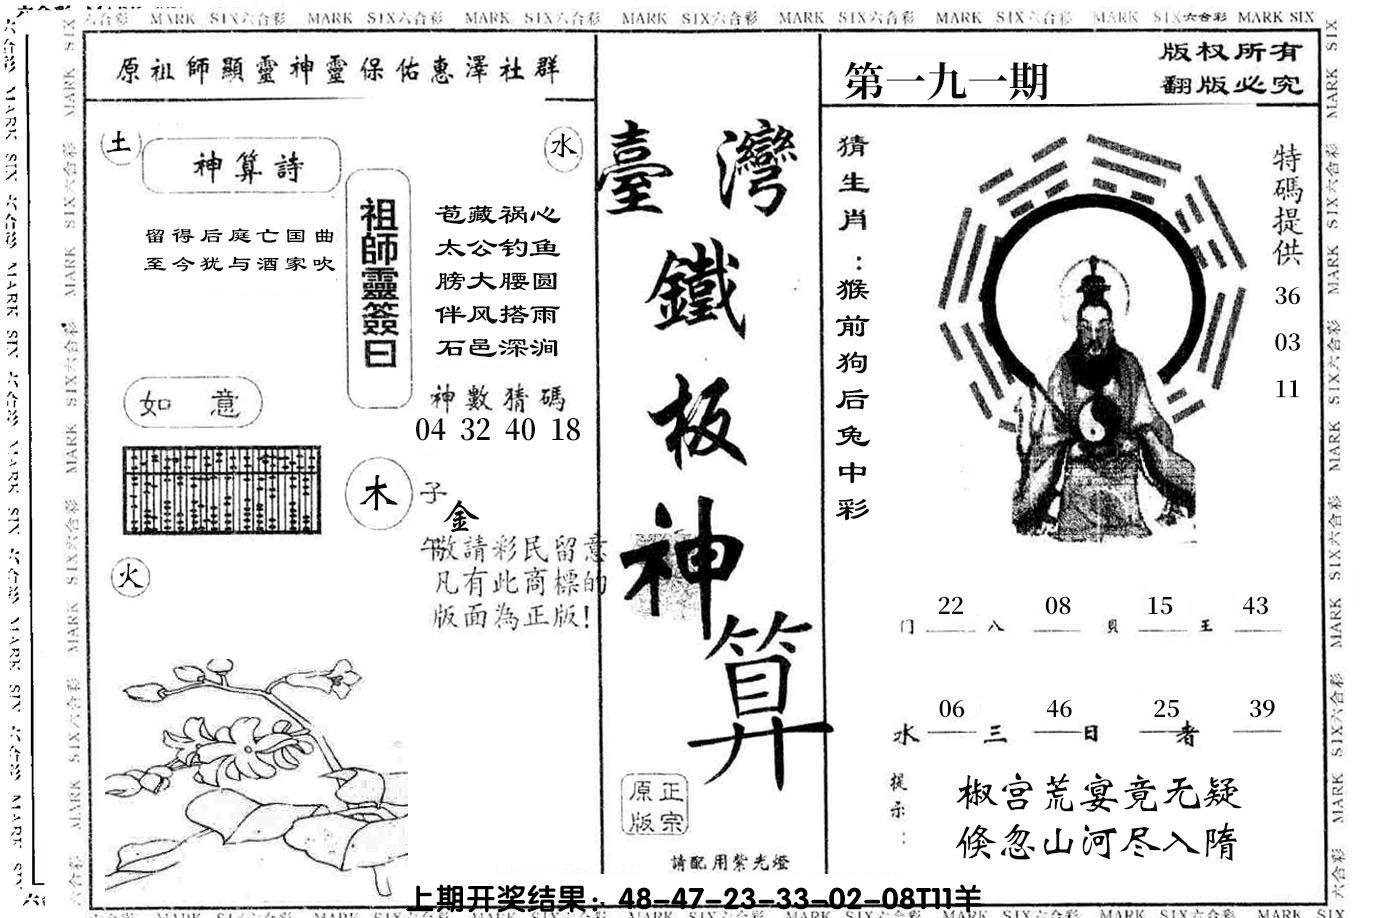 MARK SIX六合彩 MARK SIX六合彩 MARK SIX六合彩 MARK SIX六合彩 MARK SIX六合彩 MARK SIX六合彩 MARK SIX六合彩 MARK SIX
原祖師顯靈神靈保佑惠澤社群
土
神算詩
水
留得后庭亡国曲
至今犹与酒家吹
祖師靈簽曰
苞藏祸心
太公钓鱼
膀大腰圆
伴风搭雨
石邑深涧
神數猜碼
04 32 40 18
如 意
木
子
金
午
敬請彩民留意
凡有此商標的
版面為正版!
火
臺灣
鐵
板
神
算
正宗
原版
請配用紫光燈
第一九一期
版权所有
翻版必究
猜生肖:猴前狗后兔中彩
特碼提供
36
03
11
22 08 15 43
门 八 貝 王
06 46 25 39
水 三 日 者
提示:
椒宫荒宴竟无疑
倏忽山河尽入隋
上期开奖结果：48-47-23-33-02-08T11羊